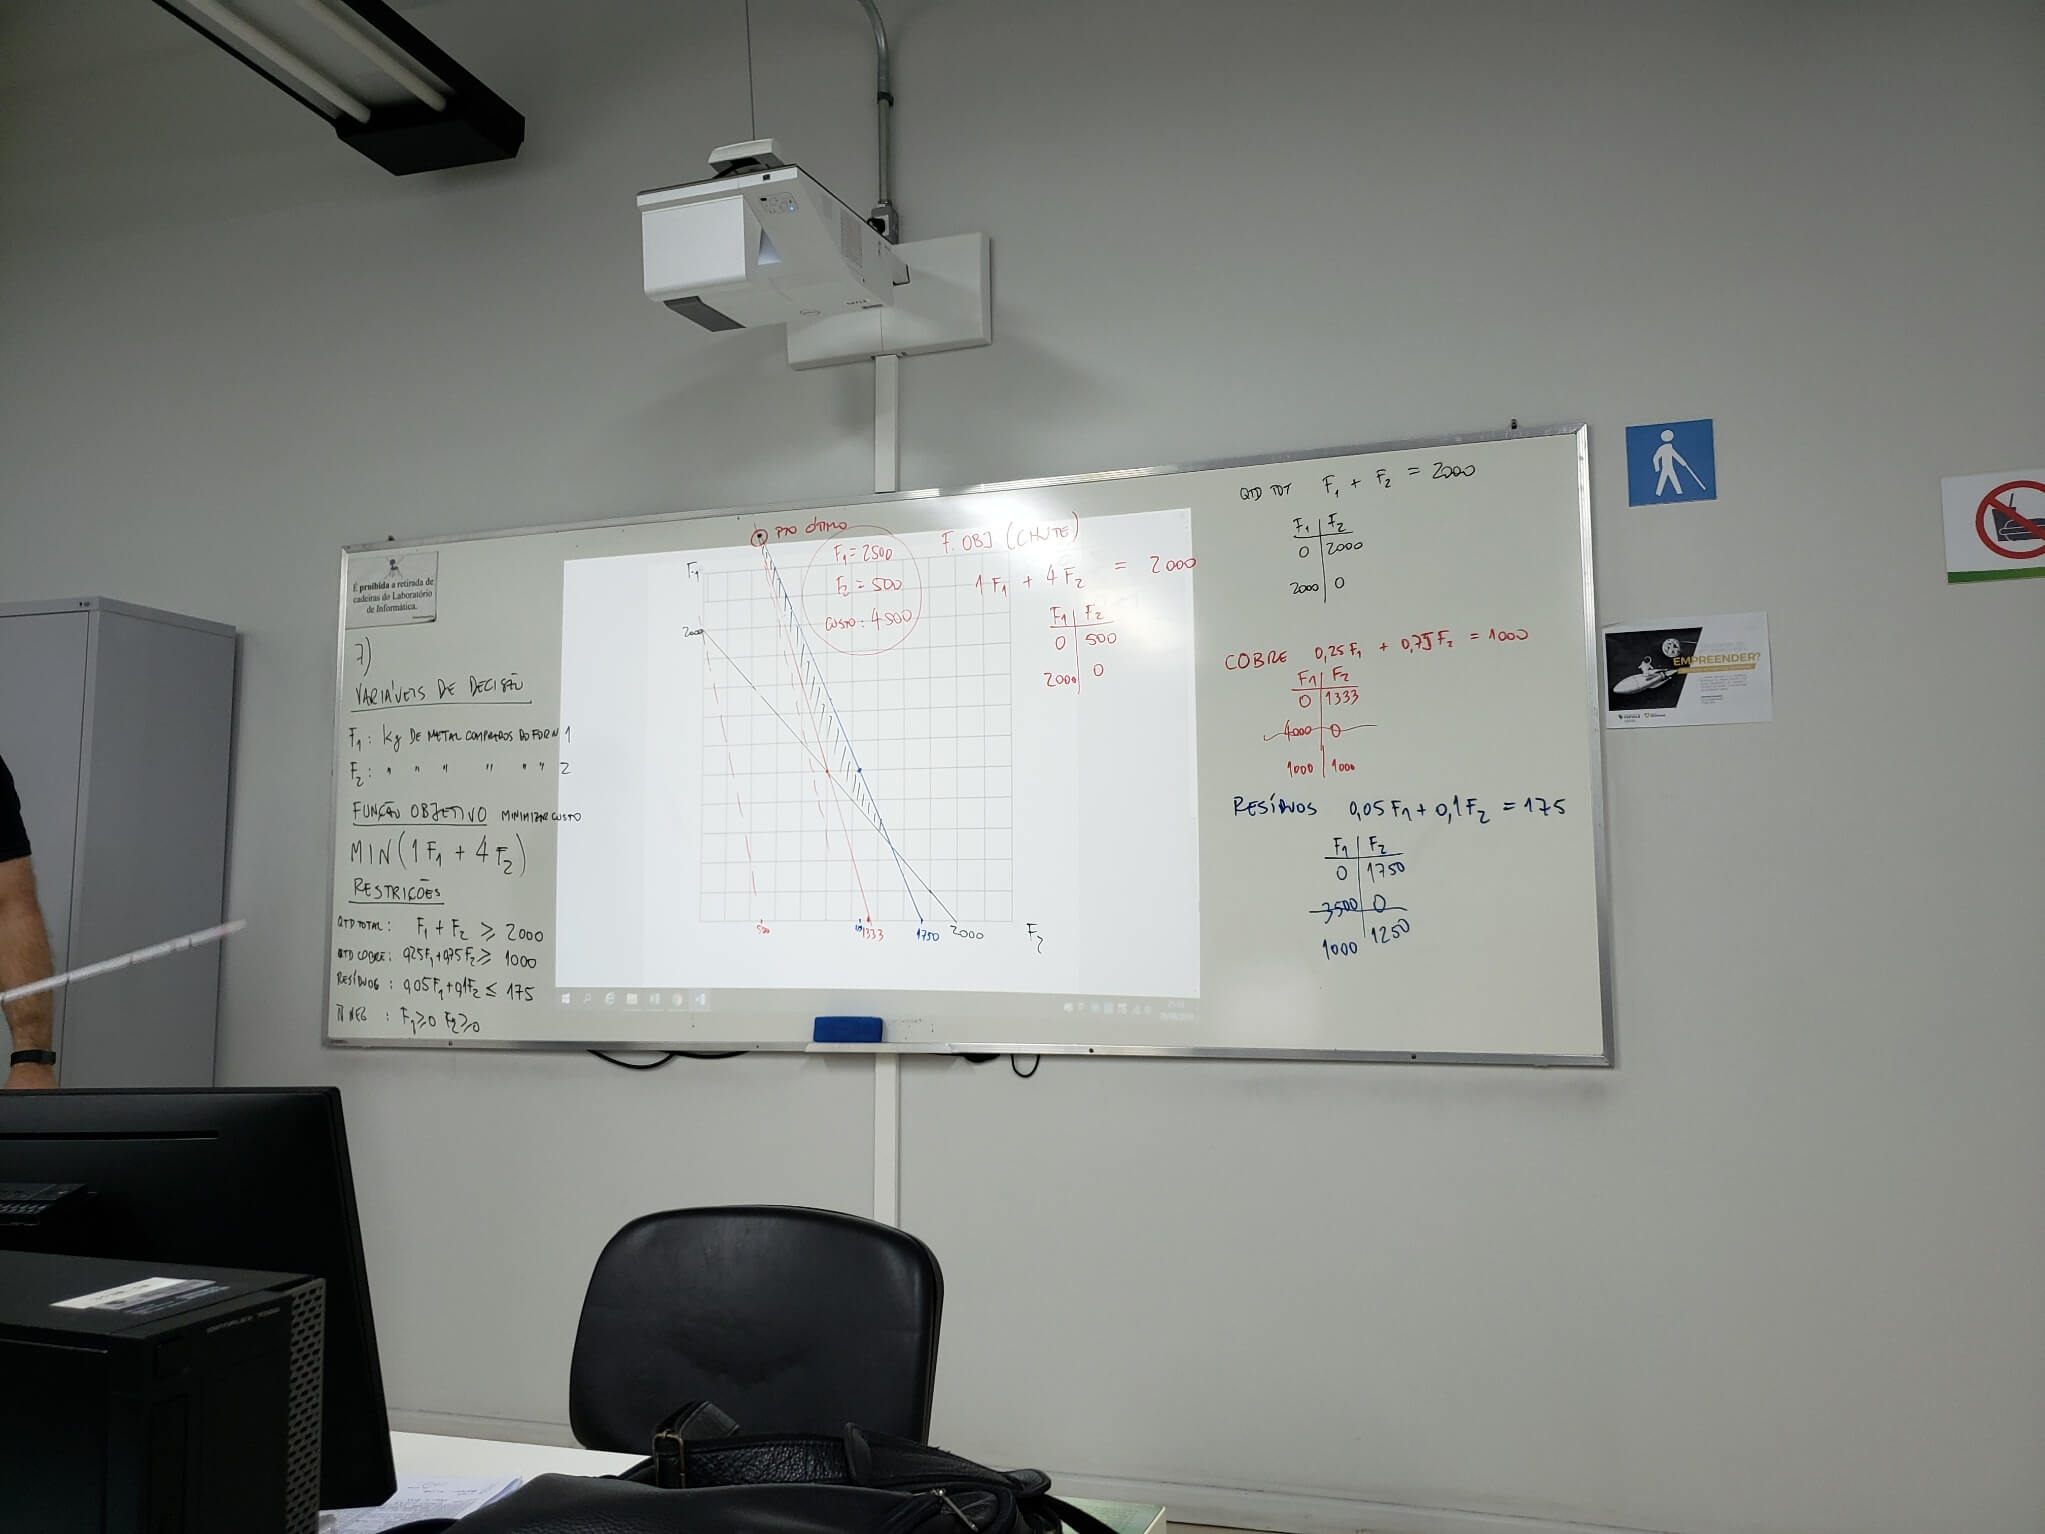 É proibida a retirada de
cadeiras do Laboratório
de Informática.
7)
VARIÁVEIS DE DECISÃO
F1: Kg DE METAL COMPRADOS DO FORN 1
F2: " " " " " " 2
FUNÇÃO OBJETIVO MINIMIZAR CUSTO
MIN(1F1 + 4F2)
RESTRIÇÕES
QTD TOTAL: F1 + F2 ≥ 2000
QTD COBRE: 0,25F1+0,75F2 ≥ 1000
RESÍDUOS: 0,05F1+0,1F2 ≤ 175
Ñ NEG: F1≥0 F2≥0
PTO ÓTIMO
F1 = 2500
F2 = 500
CUSTO: 4500
F1
2000
500
1333
1750
2000
F2
F. OBJ (CHUTE)
1F1 + 4F2 = 2000
F1 F2
0 500
2000 0
QTD TOT F1 + F2 = 2000
F1 F2
0 2000
2000 0
COBRE 0,25F1 + 0,75F2 = 1000
F1 F2
0 1333
4000 0
1000 1000
RESÍDUOS 0,05F1 + 0,1F2 = 175
F1 F2
0 1750
3500 0
1000 1250
EMPREENDER?